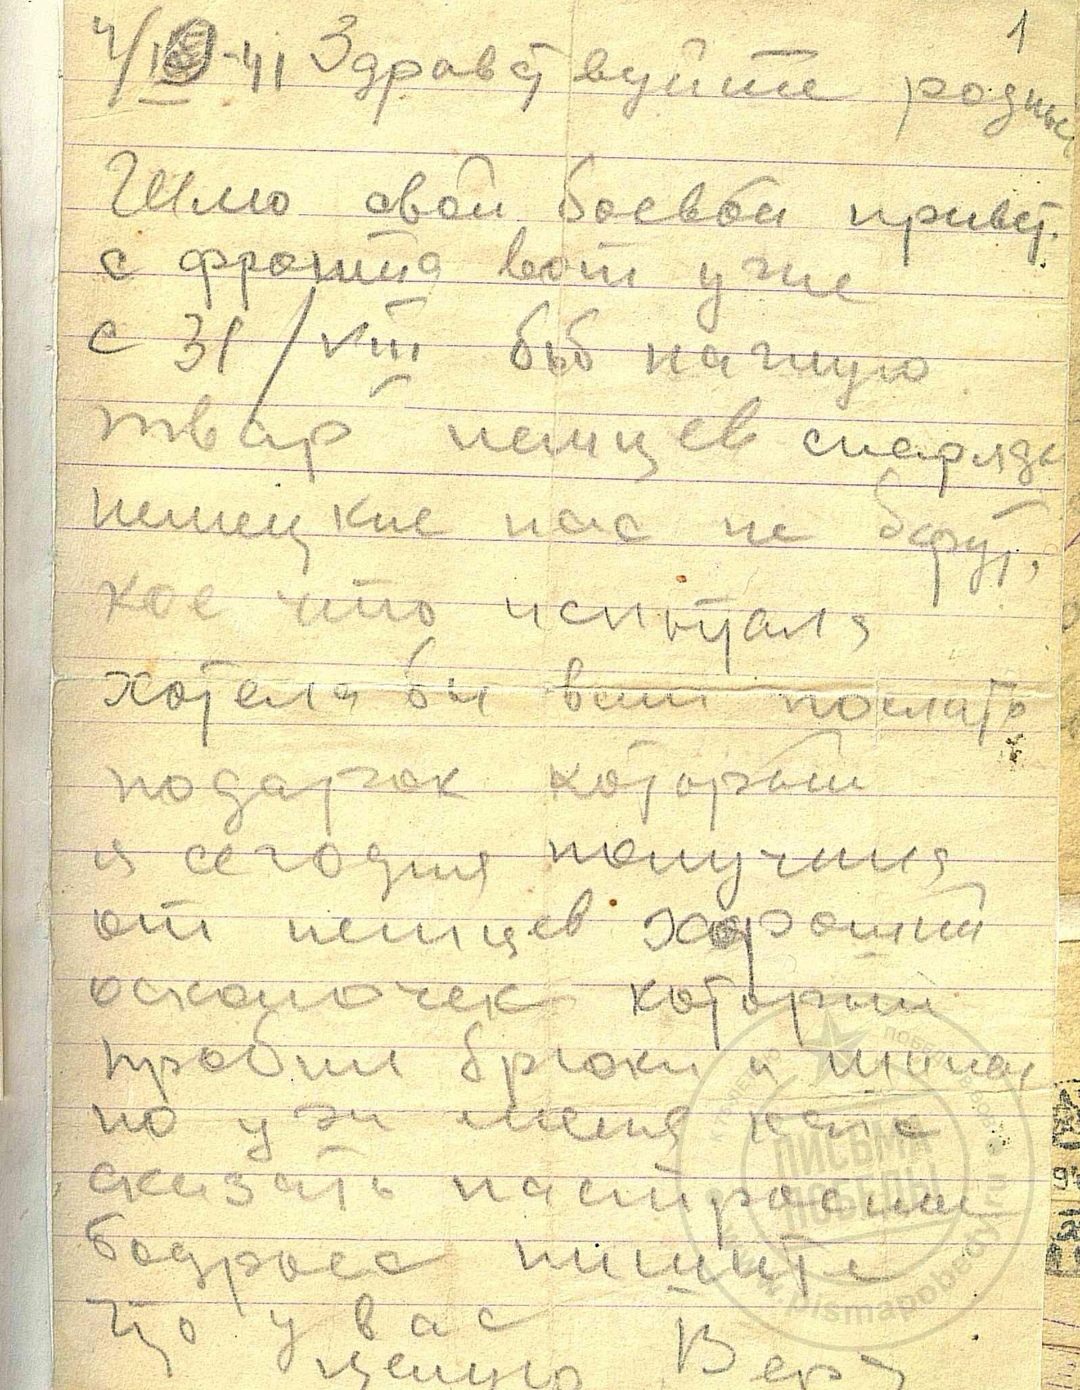 1
4/IX-41 Здравствуйте родные
Шлю свой боевой привет.
с фронта вот уже
с 31/VIII бьб начную
твар немцев снаряды
немецкие нас не берут,
кое что испытала
хотела бы вам послать
подарок который
я сегодня получила
от немцев хороший
осколочек который
пробил брюки и шинел
но у ж меня как
сказать настроение
бодрое пишите
Что у вас
целую Вера
ПИСЬМА
ПОБЕДЫ
www.pismapobedy.ru